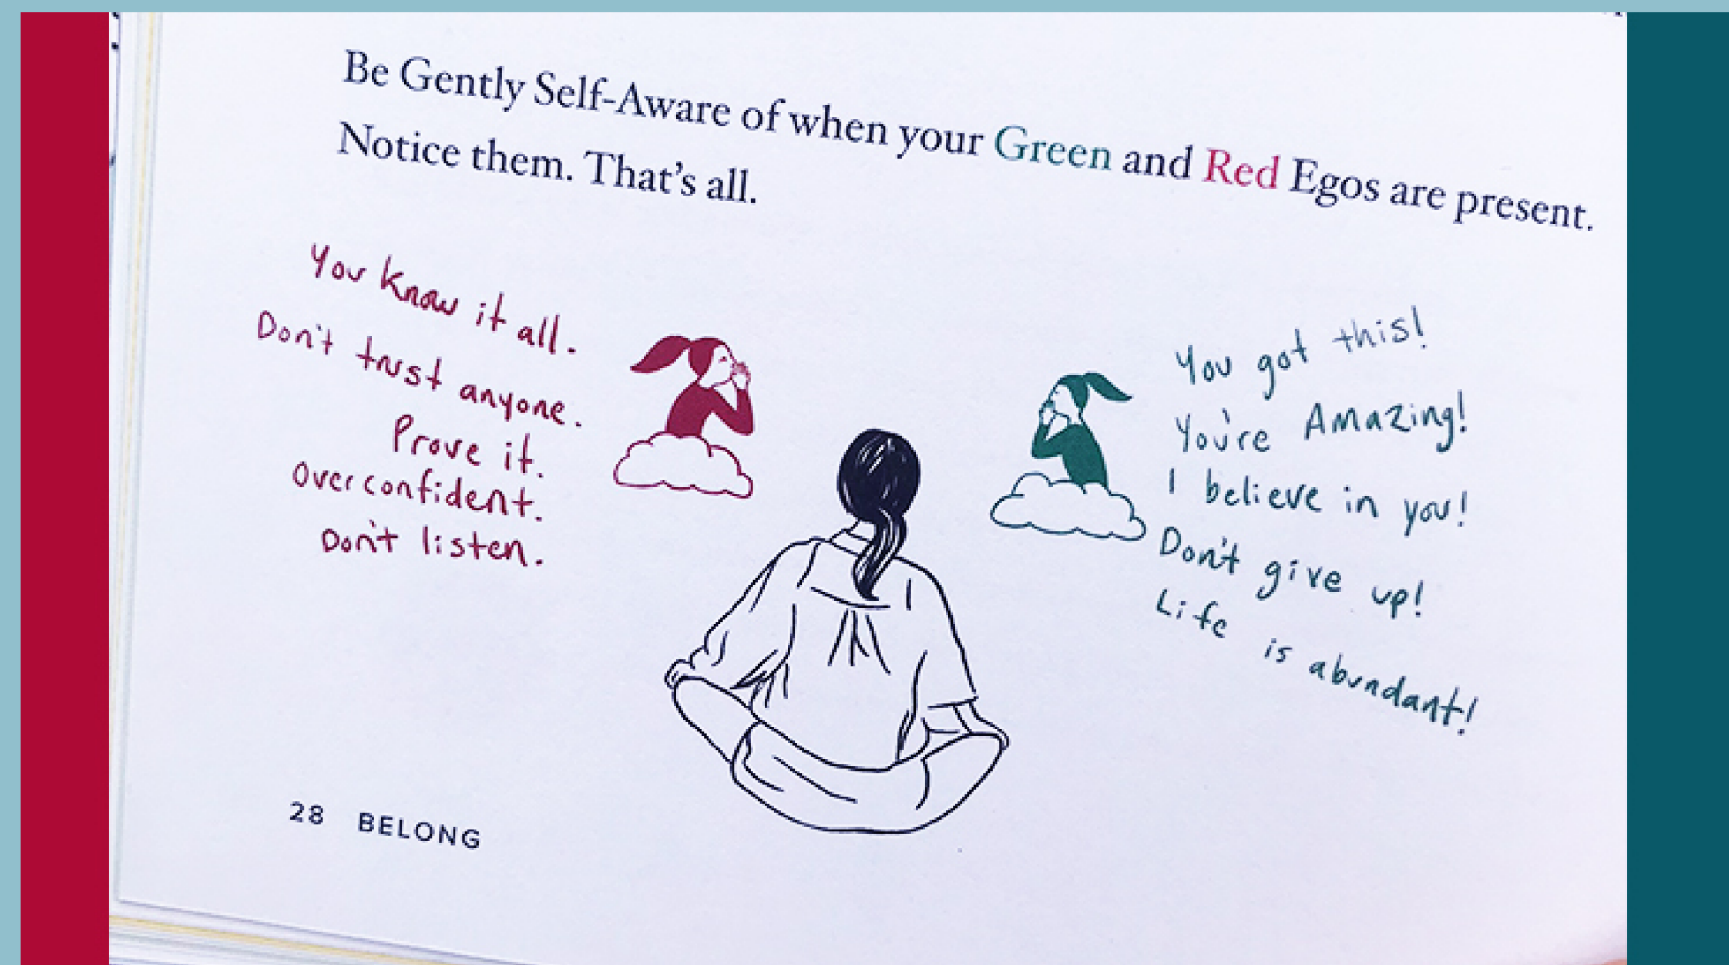 Be Gently Self-Aware of when your Green and Red Egos are present.
Notice them. That's all.
You know it all.
Don't trust anyone.
Prove it.
Overconfident.
Don't listen.
You got this!
You're Amazing!
I believe in you!
Don't give up!
Life is abundant!
28 BELONG